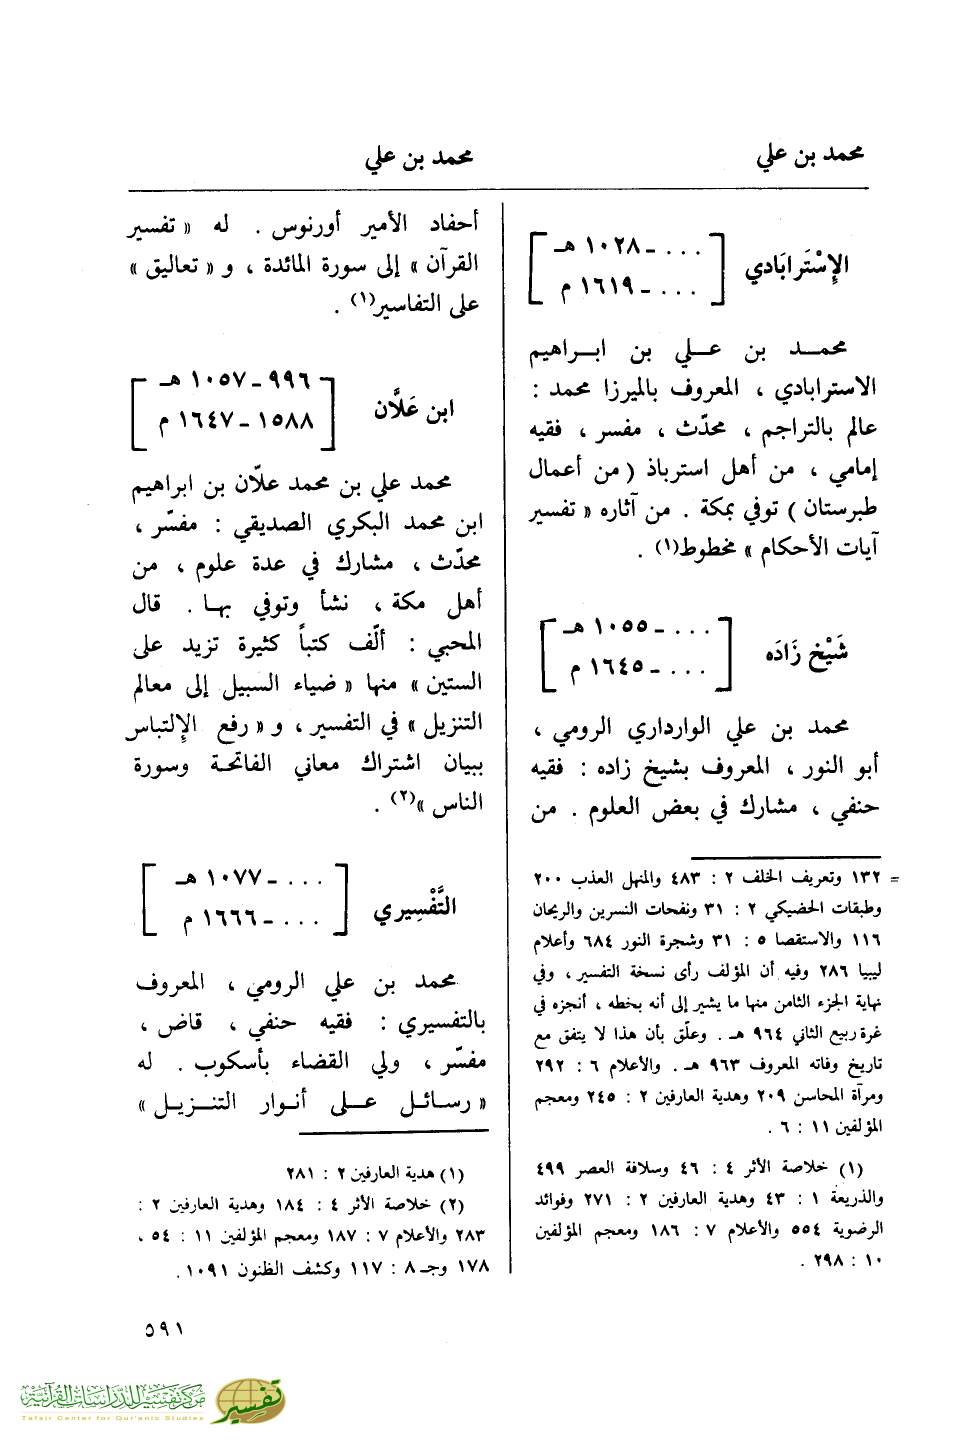 محمد بن علي
محمد بن علي
الإِسْتَرابَادي
[ . . . ـ ١٠٢٨ هـ
. . . ـ ١٦١٩ م ]
محمـد بن عـلي بن ابـراهيم
الاسترابادي ، المعروف بالميرزا محمد :
عالم بالتراجم ، محدّث ، مفسر ، فقيه
إمامي ، من أهل استرباذ ( من أعمال
طبرستان ) توفي بمكة . من آثاره « تفسير
آيات الأحكام » مخطوط(١) .
شَيْخ زَادَه
[ . . . ـ ١٠٥٥ هـ
. . . ـ ١٦٤٥ م ]
محمد بن علي الوارداري الرومي ،
أبو النور ، المعروف بشيخ زاده : فقيه
حنفي ، مشارك في بعض العلوم . من
= ١٣٢ وتعريف الخلف ٢ : ٤٨٣ والمنهل العذب ٢٠٠
وطبقات الحضيكي ٢ : ٣١ ونفحات النسرين والريحان
١١٦ والاستقصا ٥ : ٣١ وشجرة النور ٦٨٤ وأعلام
ليبيا ٢٨٦ وفيه أن المؤلف رأى نسخة التفسير ، وفي
نهاية الجزء الثامن منها ما يشير إلى أنه بخطه ، أنجزه في
غرة ربيع الثاني ٩٦٤ هـ . وعلّق بأن هذا لا يتفق مع
تاريخ وفاته المعروف ٩٦٣ هـ . والأعلام ٦ : ٢٩٢
ومرآة المحاسن ٢٠٩ وهدية العارفين ٢ : ٢٤٥ ومعجم
المؤلفين ١١ : ٦ .
(١) خلاصة الأثر ٤ : ٤٦ وسلافة العصر ٤٩٩
والذريعة ١ : ٤٣ وهدية العارفين ٢ : ٢٧١ وفوائد
الرضوية ٥٥٤ والأعلام ٧ : ١٨٦ ومعجم المؤلفين
١٠ : ٢٩٨ .
أحفاد الأمير أورنوس . له « تفسير
القرآن » إلى سورة المائدة ، و « تعاليق »
على التفاسير(١) .
ابن عَلَّان
[ ٩٩٦ ـ ١٠٥٧ هـ
١٥٨٨ ـ ١٦٤٧ م ]
محمد علي بن محمد علّان بن ابراهيم
ابن محمد البكري الصديقي : مفسّر ،
محدّث ، مشارك في عدة علوم ، من
أهل مكة ، نشأ وتوفي بهـا . قال
المحبي : ألّف كتباً كثيرة تزيد على
الستين » منها « ضياء السبيل إلى معالم
التنزيل » في التفسير ، و « رفع الإلتباس
ببيان اشتراك معاني الفاتحة وسورة
الناس »(٢) .
التَّفْسِيري
[ . . . ـ ١٠٧٧ هـ
. . . ـ ١٦٦٦ م ]
محمد بن علي الرومي ، المعروف
بالتفسيري : فقيه حنفي ، قاض ،
مفسّر ، ولي القضاء بأسكوب . له
« رسـائـل عـلى أنـوار التنـزيـل »
(١) هدية العارفين ٢ : ٢٨١
(٢) خلاصة الأثر ٤ : ١٨٤ وهدية العارفين ٢ :
٢٨٣ والأعلام ٧ : ١٨٧ ومعجم المؤلفين ١١ : ٥٤ ،
١٧٨ وجـ ٨ : ١١٧ وكشف الظنون ١٠٩١ .
٥٩١
مركز تفسير للدراسات القرآنية
Tafsir Center for Qur'anic Studies
تفسير